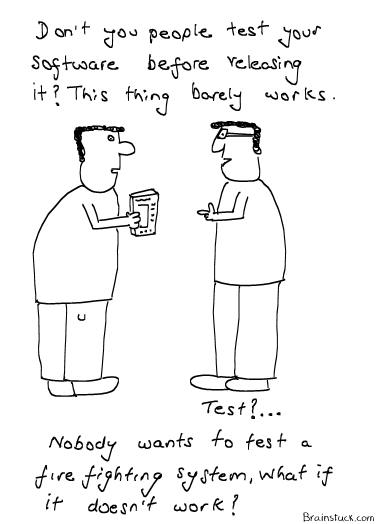 Don't you people test your
software before releasing
it? This thing barely works.
Test?...
Nobody wants to test a
fire fighting system, What if
it doesn't work?
Brainstuck.com